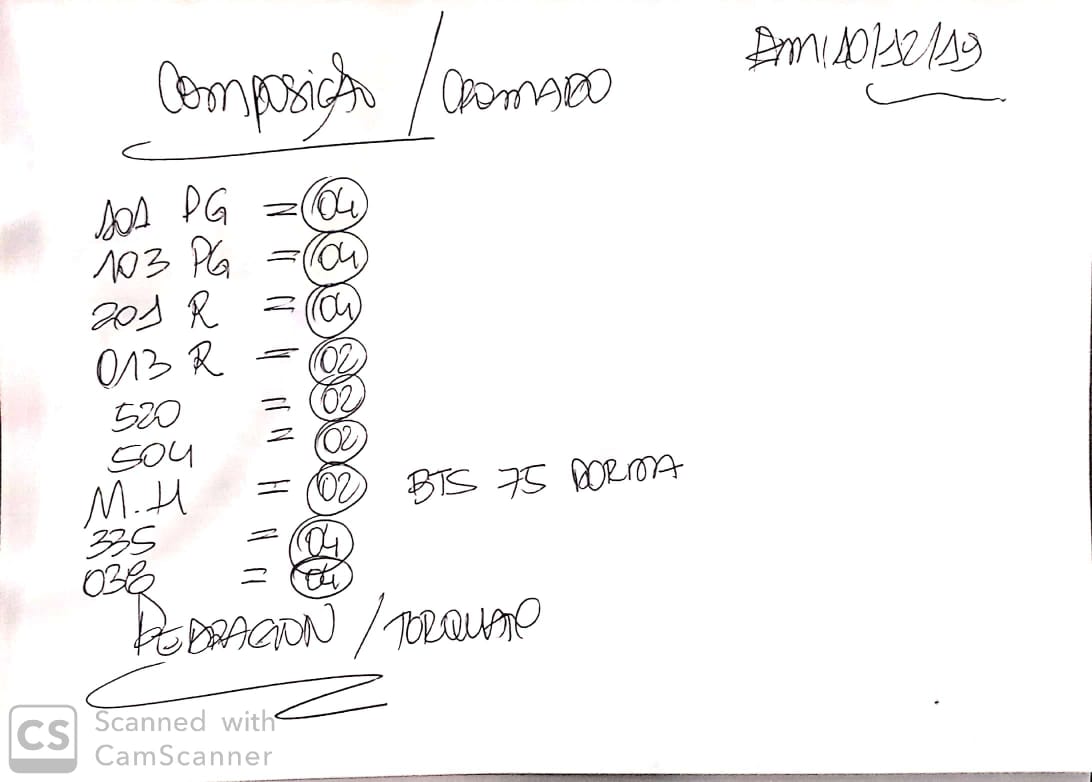 Em, 10/12/19
Composição / CROMADO
101 PG = 04
103 PG = 04
201 R = 04
013 R = 02
520 = 02
504 = 02
M.H = 02 BTS 75 DORMA
335 = 04
038 = 04
/ TORQUATO
CS Scanned with
CamScanner